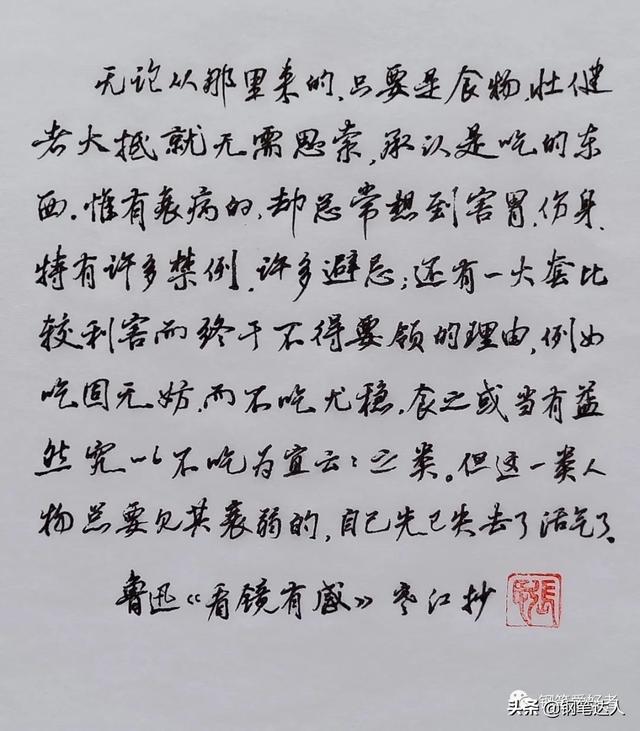 无论从那里来的,只要是食物,壮健
者大抵就无需思索,承认是吃的东
西。惟有衰病的,却总常想到害胃,伤身,
特有许多禁例,许多避忌;还有一大套比
较利害而终于不得要领的理由,例如
吃固无妨,而不吃尤稳,食之或当有益
然究以不吃为宜云云之类。但这一类人
物总要见其衰弱的,自己先已失去了活气了。
鲁迅《看镜有感》寒江抄
张
钢笔爱好者
头条 @钢笔达人